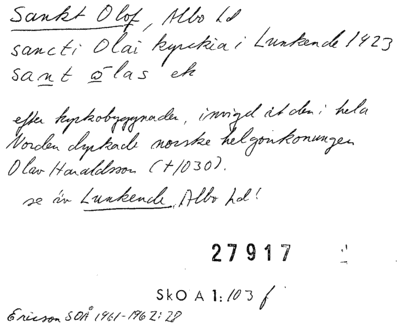 Sankt Olof, Albo hd
sancti Olai kyrkia i Lunkende 1423
sant olas ek
efter kyrkobyggnaden, invigd åt den i hela
Norden dyrkade norske helgonkonungen
Olav Haraldsson (†1030).
se äv Lunkende, Albo hd!
27917
SkO A 1:103 f
Ericson SOÅ 1961-1962:28